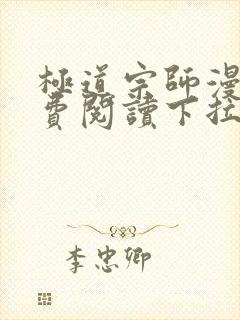 極道宗師漫
費閱讀下拉
李忠卿